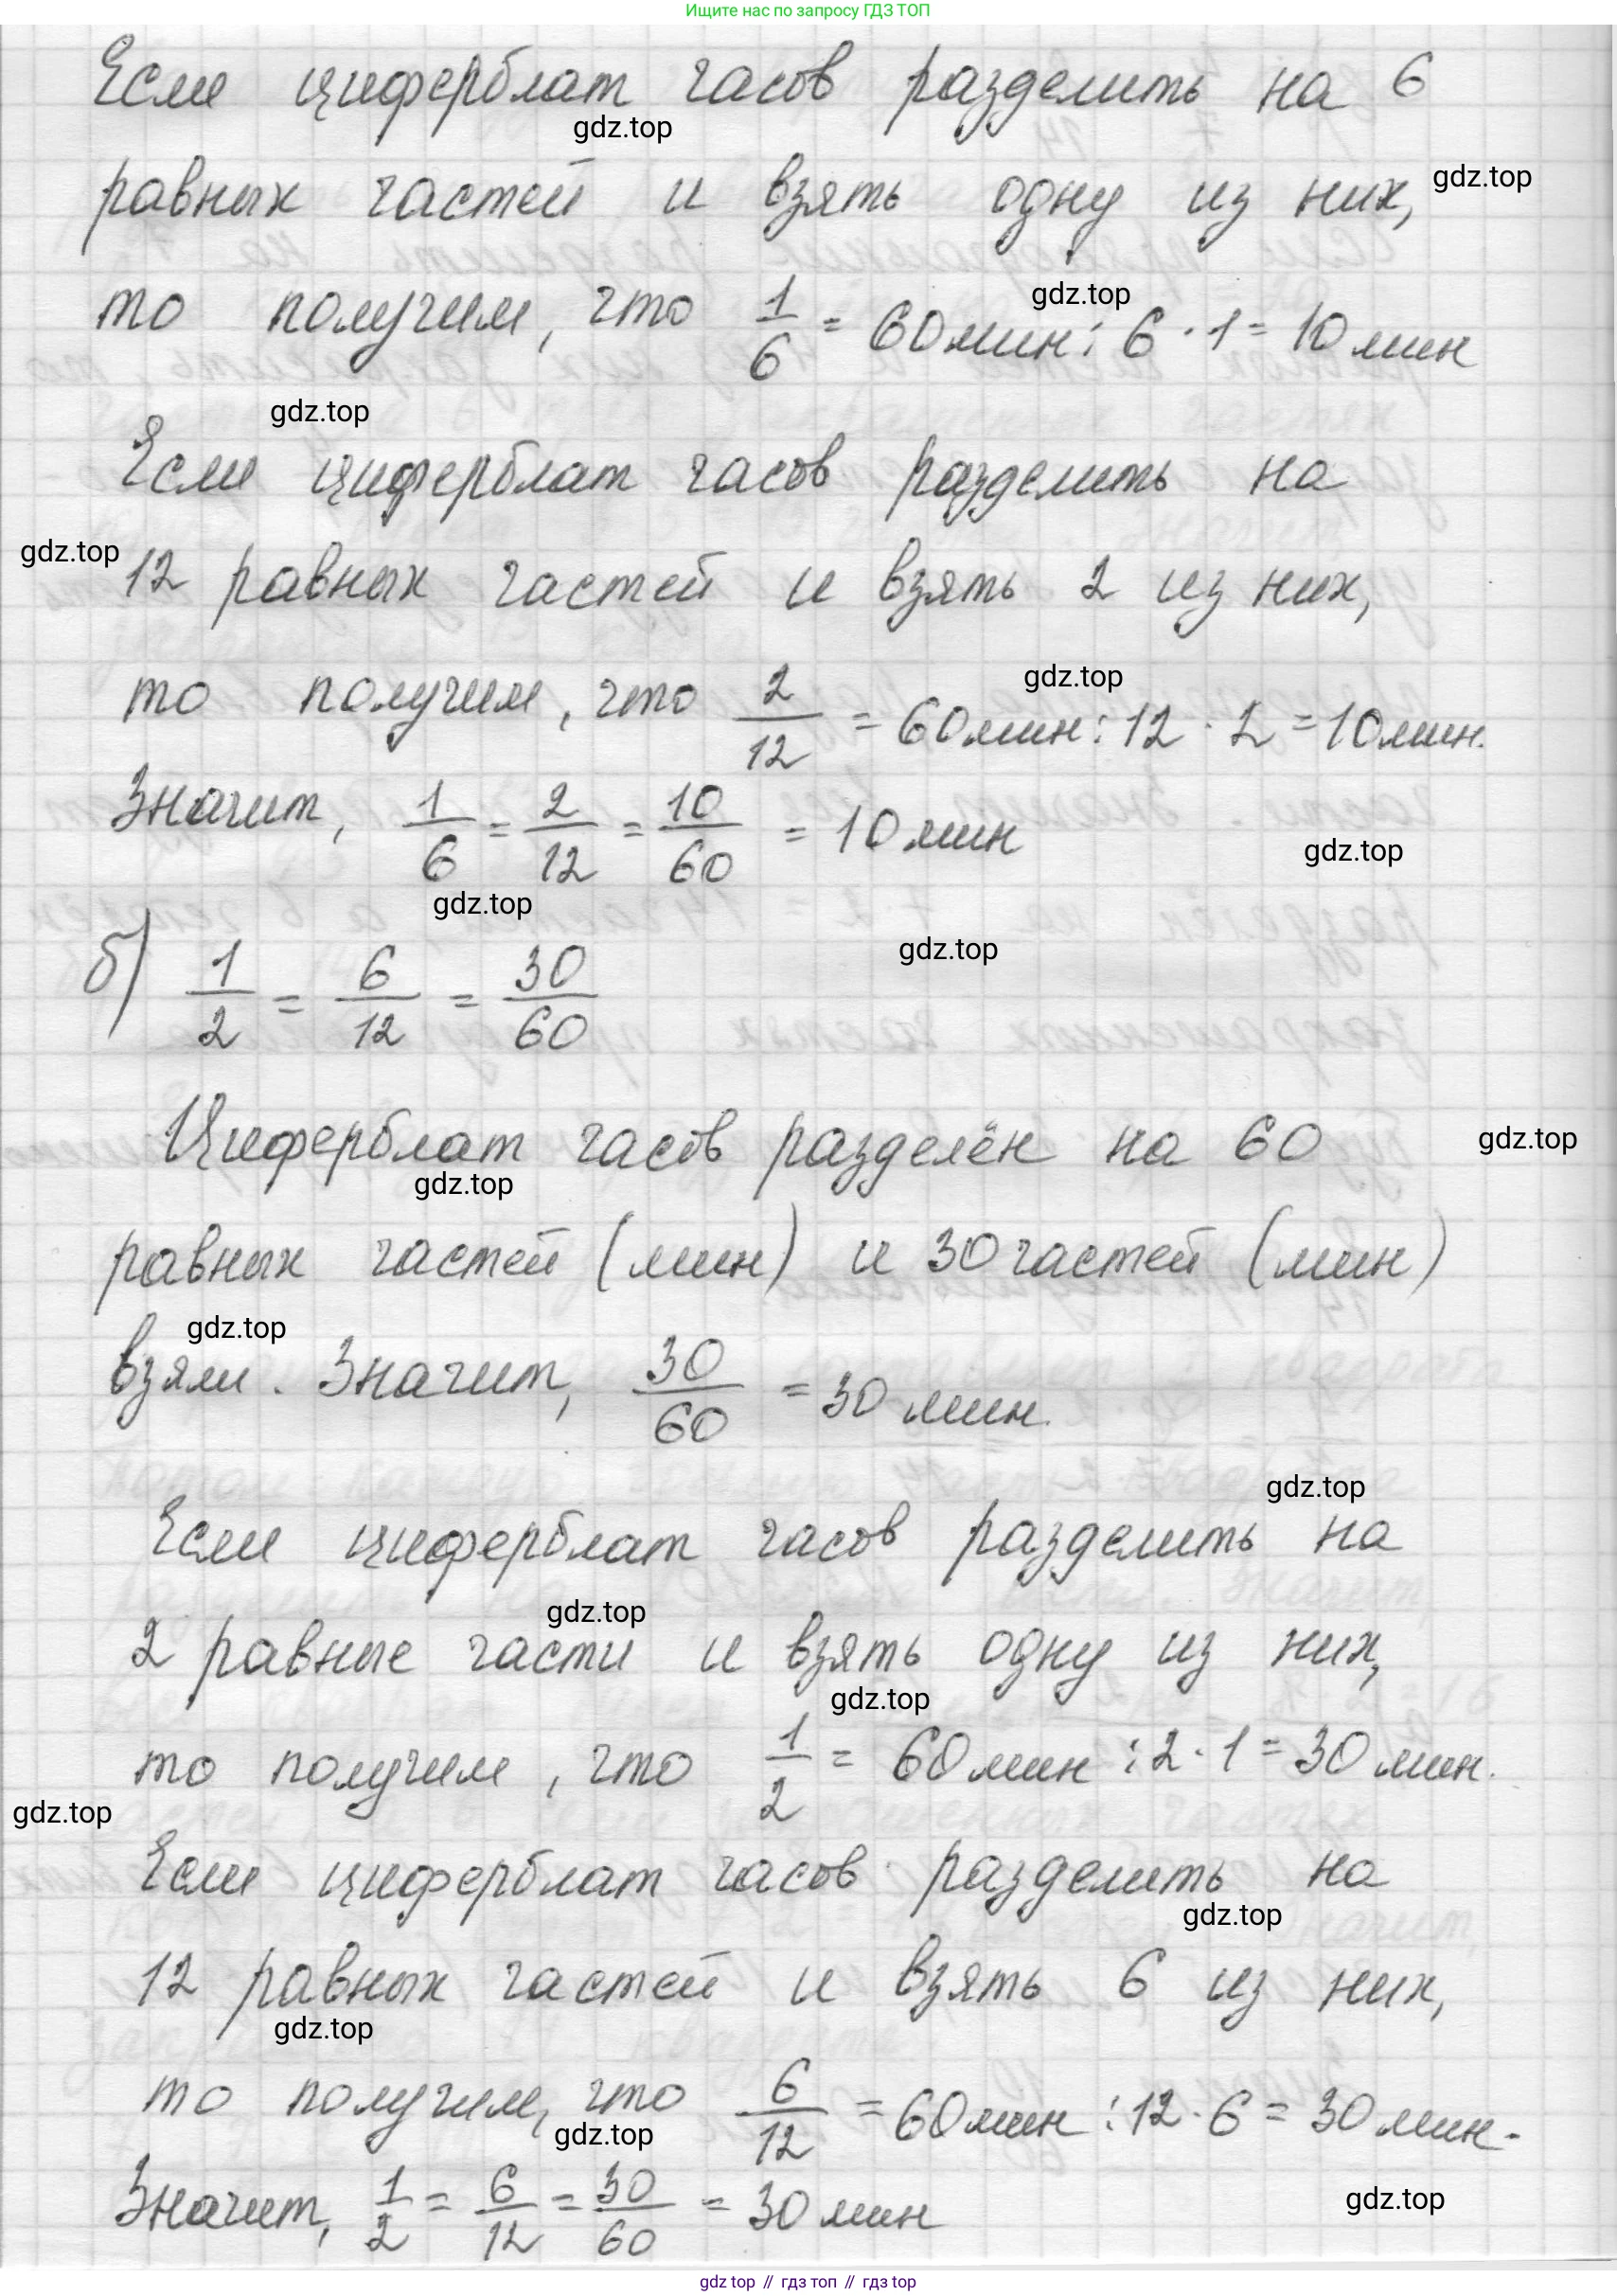 Ищите нас по запросу ГДЗ ТОП
Если циферблат часов разделить на 6
gdz.top
равных частей и взять одну из них,
gdz.top
то получим, что 1/6 = 60 мин : 6 · 1 = 10 мин
gdz.top
gdz.top
Если циферблат часов разделить на
gdz.top
12 равных частей и взять 2 из них,
gdz.top
то получим, что 2/12 = 60 мин : 12 · 2 = 10 мин.
Значит, 1/6 = 2/12 = 10/60 = 10 мин
gdz.top
gdz.top
gdz.top
б) 1/2 = 6/12 = 30/60
Циферблат часов разделён на 60
gdz.top
gdz.top
равных частей (мин) и 30 частей (мин)
gdz.top
взяли. Значит, 30/60 = 30 мин.
gdz.top
Если циферблат часов разделить на
gdz.top
2 равные части и взять одну из них,
gdz.top
то получим, что 1/2 = 60 мин : 2 · 1 = 30 мин.
gdz.top
Если циферблат часов разделить на
gdz.top
12 равных частей и взять 6 из них,
gdz.top
то получим, что 6/12 = 60 мин : 12 · 6 = 30 мин.
gdz.top
Значит, 1/2 = 6/12 = 30/60 = 30 мин
gdz.top
gdz top // гдз топ // гдз top